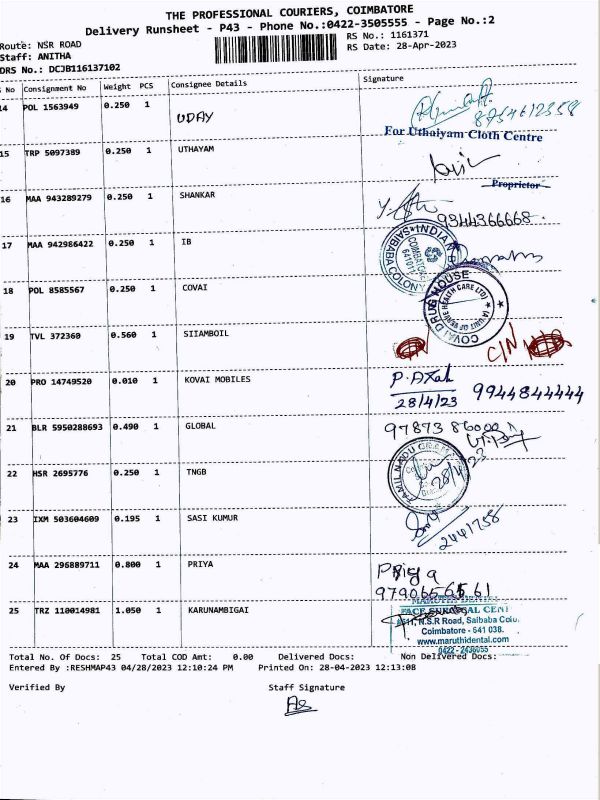 THE PROFESSIONAL COURIERS, COIMBATORE
Delivery Runsheet - P43 - Phone No.:0422-3505555 - Page No.:2
Route: NSR ROAD
RS No.: 1161371
Staff: ANITHA
RS Date: 28-Apr-2023
DRS No.: DCJB116137102
No Consignment No Weight PCS Consignee Details Signature
14 POL 1563949 0.250 1 UDAY
8754612358
For Uthaiyam Cloth Centre
15 TRP 5097389 0.250 1 UTHAYAM
Proprietor
16 MAA 943289279 0.250 1 SHANKAR
9344366668
17 MAA 942986422 0.250 1 IB
INDIAN
SAIBABA COLONY
COIMBATORE
641011
18 POL 8585567 0.250 1 COVAI
COVAI DRUG HOUSE
19 TVL 372360 0.560 1 SIIAMBOIL
C/N
20 PRO 14749520 0.010 1 KOVAI MOBILES
28/4/23 9944844444
21 BLR 5950288693 0.490 1 GLOBAL
97873 86000
22 HSR 2695776 0.250 1 TNGB
TAMIL NADU GRAMA
23 IXM 503604609 0.195 1 SASI KUMUR
2441758
24 MAA 296889711 0.800 1 PRIYA
Priya
25 TRZ 110014981 1.050 1 KARUNAMBIGAI
N.S.R Road, Saibaba Colo
Coimbatore - 641 038.
www.maruthidental.com
0422 - 2436055
Total No. Of Docs: 25 Total COD Amt: 0.00 Delivered Docs: Non Delivered Docs:
Entered By :RESHMAP43 04/28/2023 12:10:24 PM Printed On: 28-04-2023 12:13:08
Verified By Staff Signature